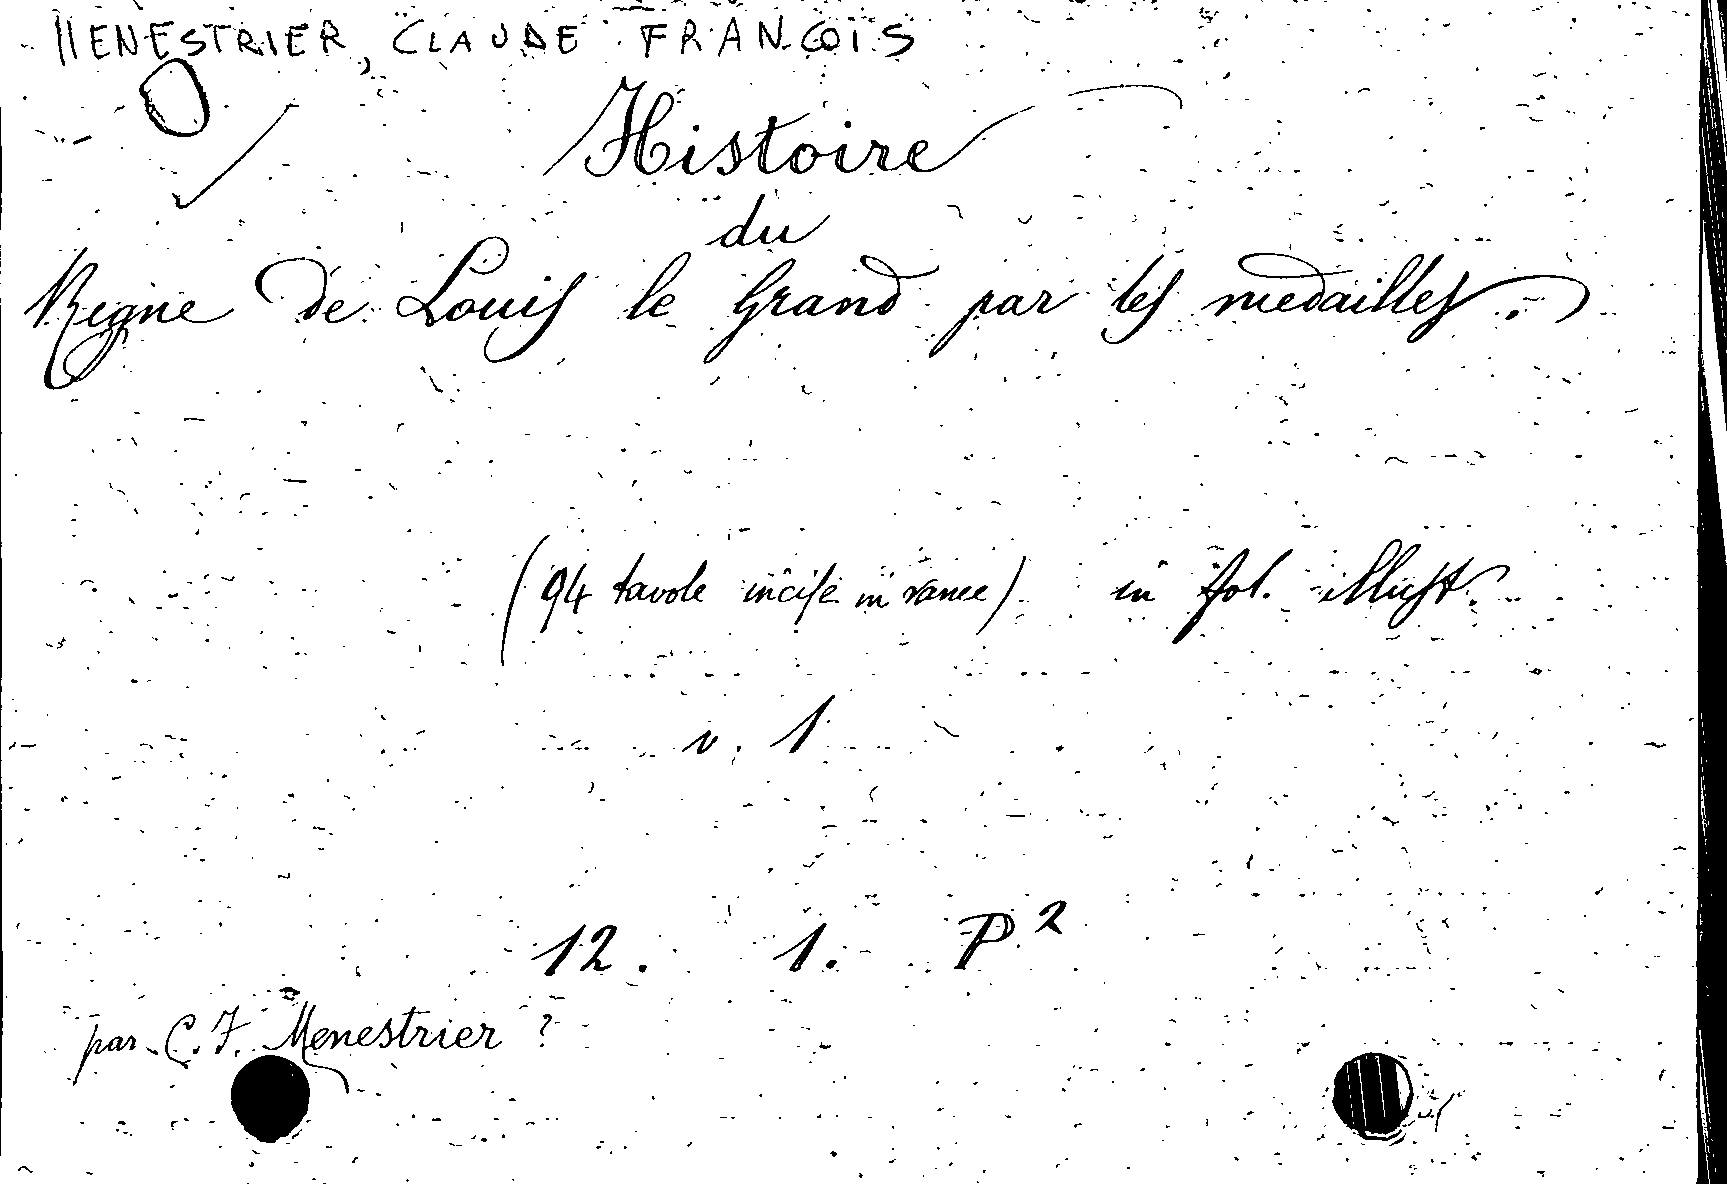 MENESTRIER, CLAUDE FRANÇOIS
Histoire
du
Regne de Louis le Grand par les medailles.
(94 tavole incise in rame) in fol. illust.
v. 1
12. 1. P²
par C. F. Menestrier ?